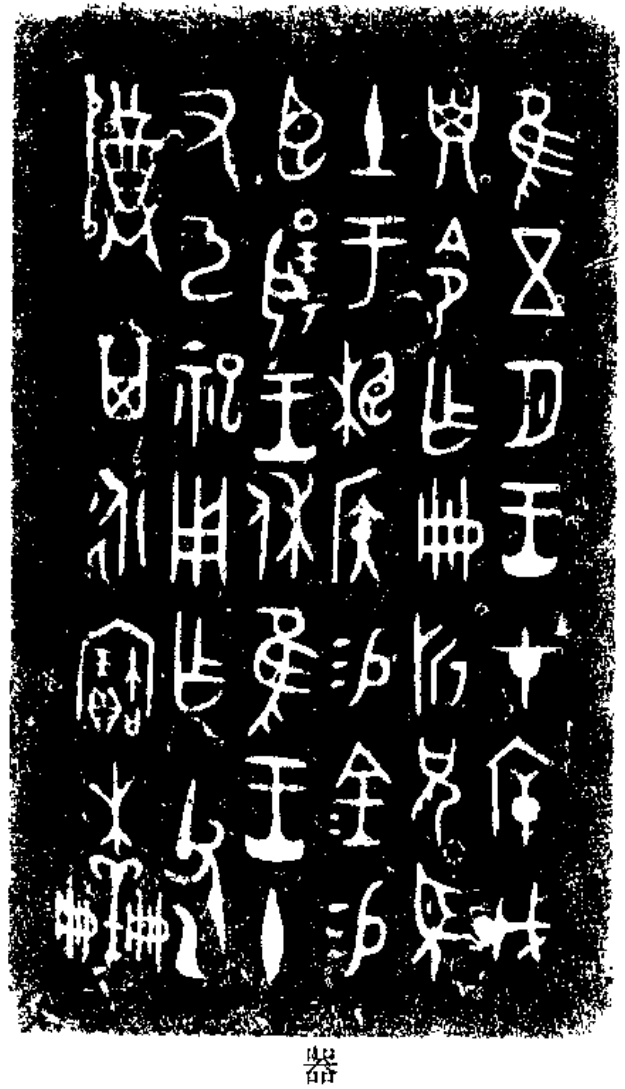 隹五月王才𢉩戊
子令乍冊折兄望
土于相侯易金易
臣揚王休隹王十
又九祀用乍父乙
尊其永寶木羊冊
器